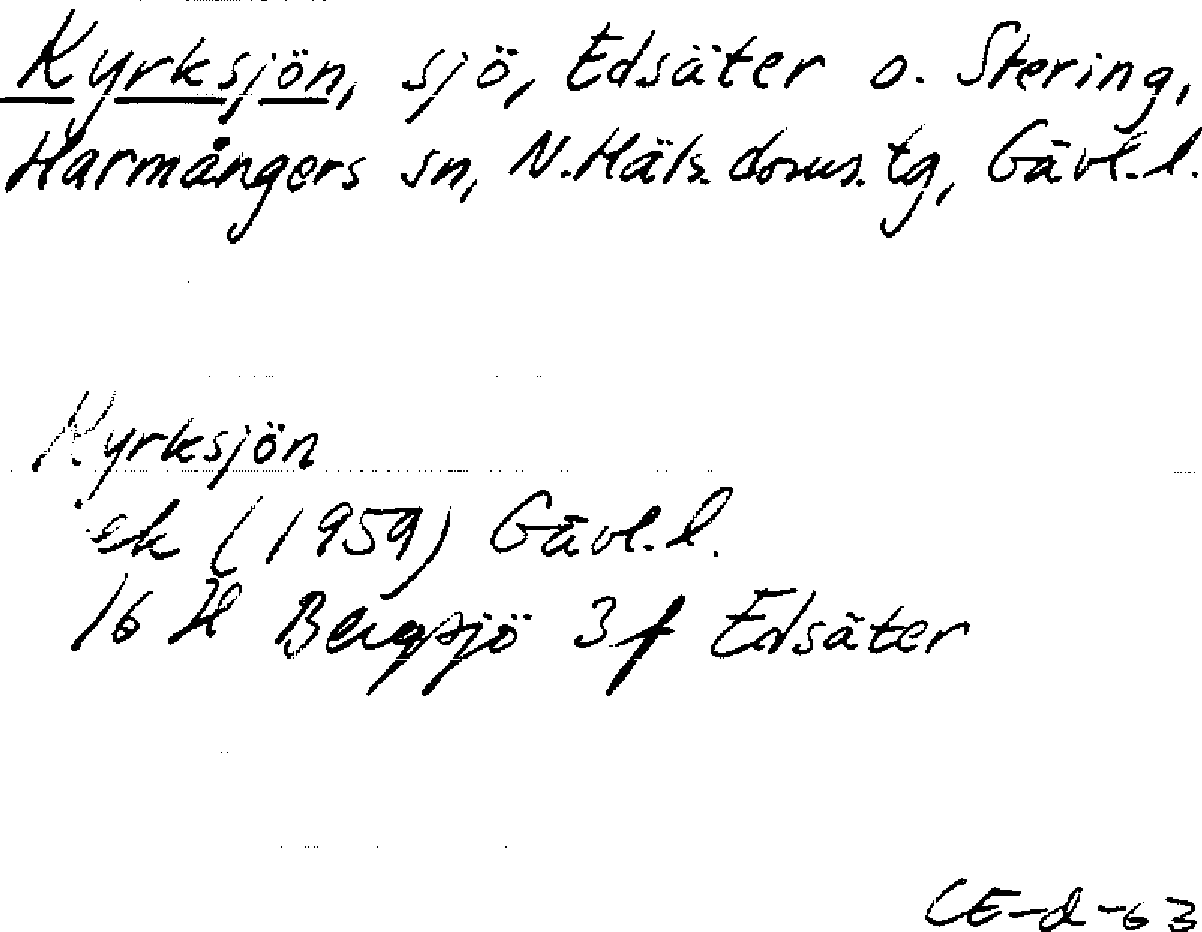 Kyrksjön, sjö, Edsäter o. Stering,
Harmångers sn, N. Häls. doms. tg, Gävl. l.
Kyrksjön
ek (1959) Gävl. l.
16 H Bergsjö 3 f Edsäter
CE-d-63